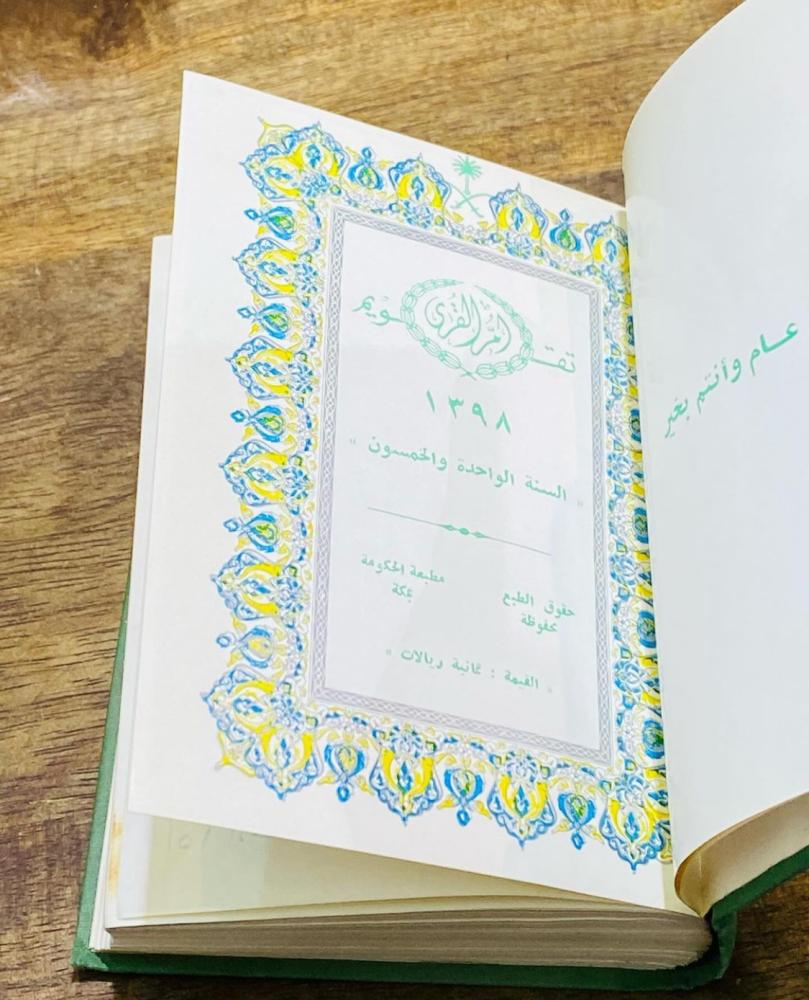 عام وأنتم بخير
تقويم أم القرى
١٣٩٨
" السنة الواحدة والخمسون "
حقوق الطبع محفوظة
مطبعة الحكومة بمكة
" القيمة : ثمانية ريالات "